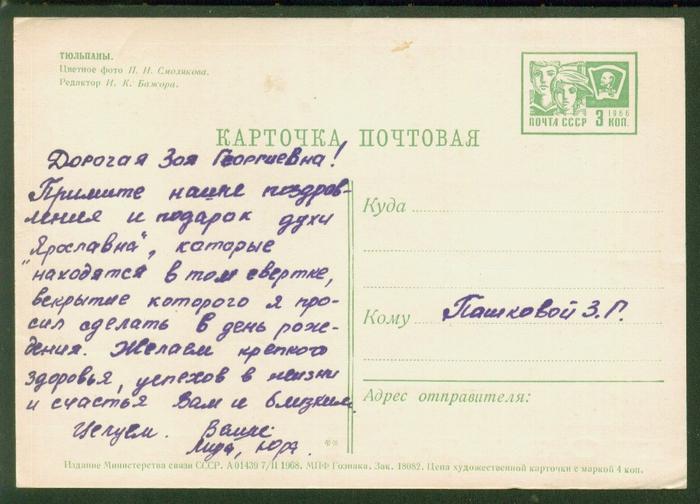 ТЮЛЬПАНЫ.
Цветное фото П. И. Смолякова.
Редактор И. К. Бажора.
1966
ПОЧТА СССР 3 КОП.
КАРТОЧКА ПОЧТОВАЯ
Дорогая Зоя Георгиевна!
Примите наше поздрав-
ления и подарок духи
"Ярославна", которые
находятся в том свертке,
вскрытие которого я про-
сил сделать в день рож-
дения. Желаем крепкого
здоровья, успехов в жизни
и счастья Вам и близким.
Целуем. Ваши:
Лида, Юра.
Куда
Кому Пашковой З. Г.
Адрес отправителя:
Издание Министерства связи СССР. А 01439 7/II 1968. МПФ Гознака. Зак. 18082. Цена художественной карточки с маркой 4 коп.